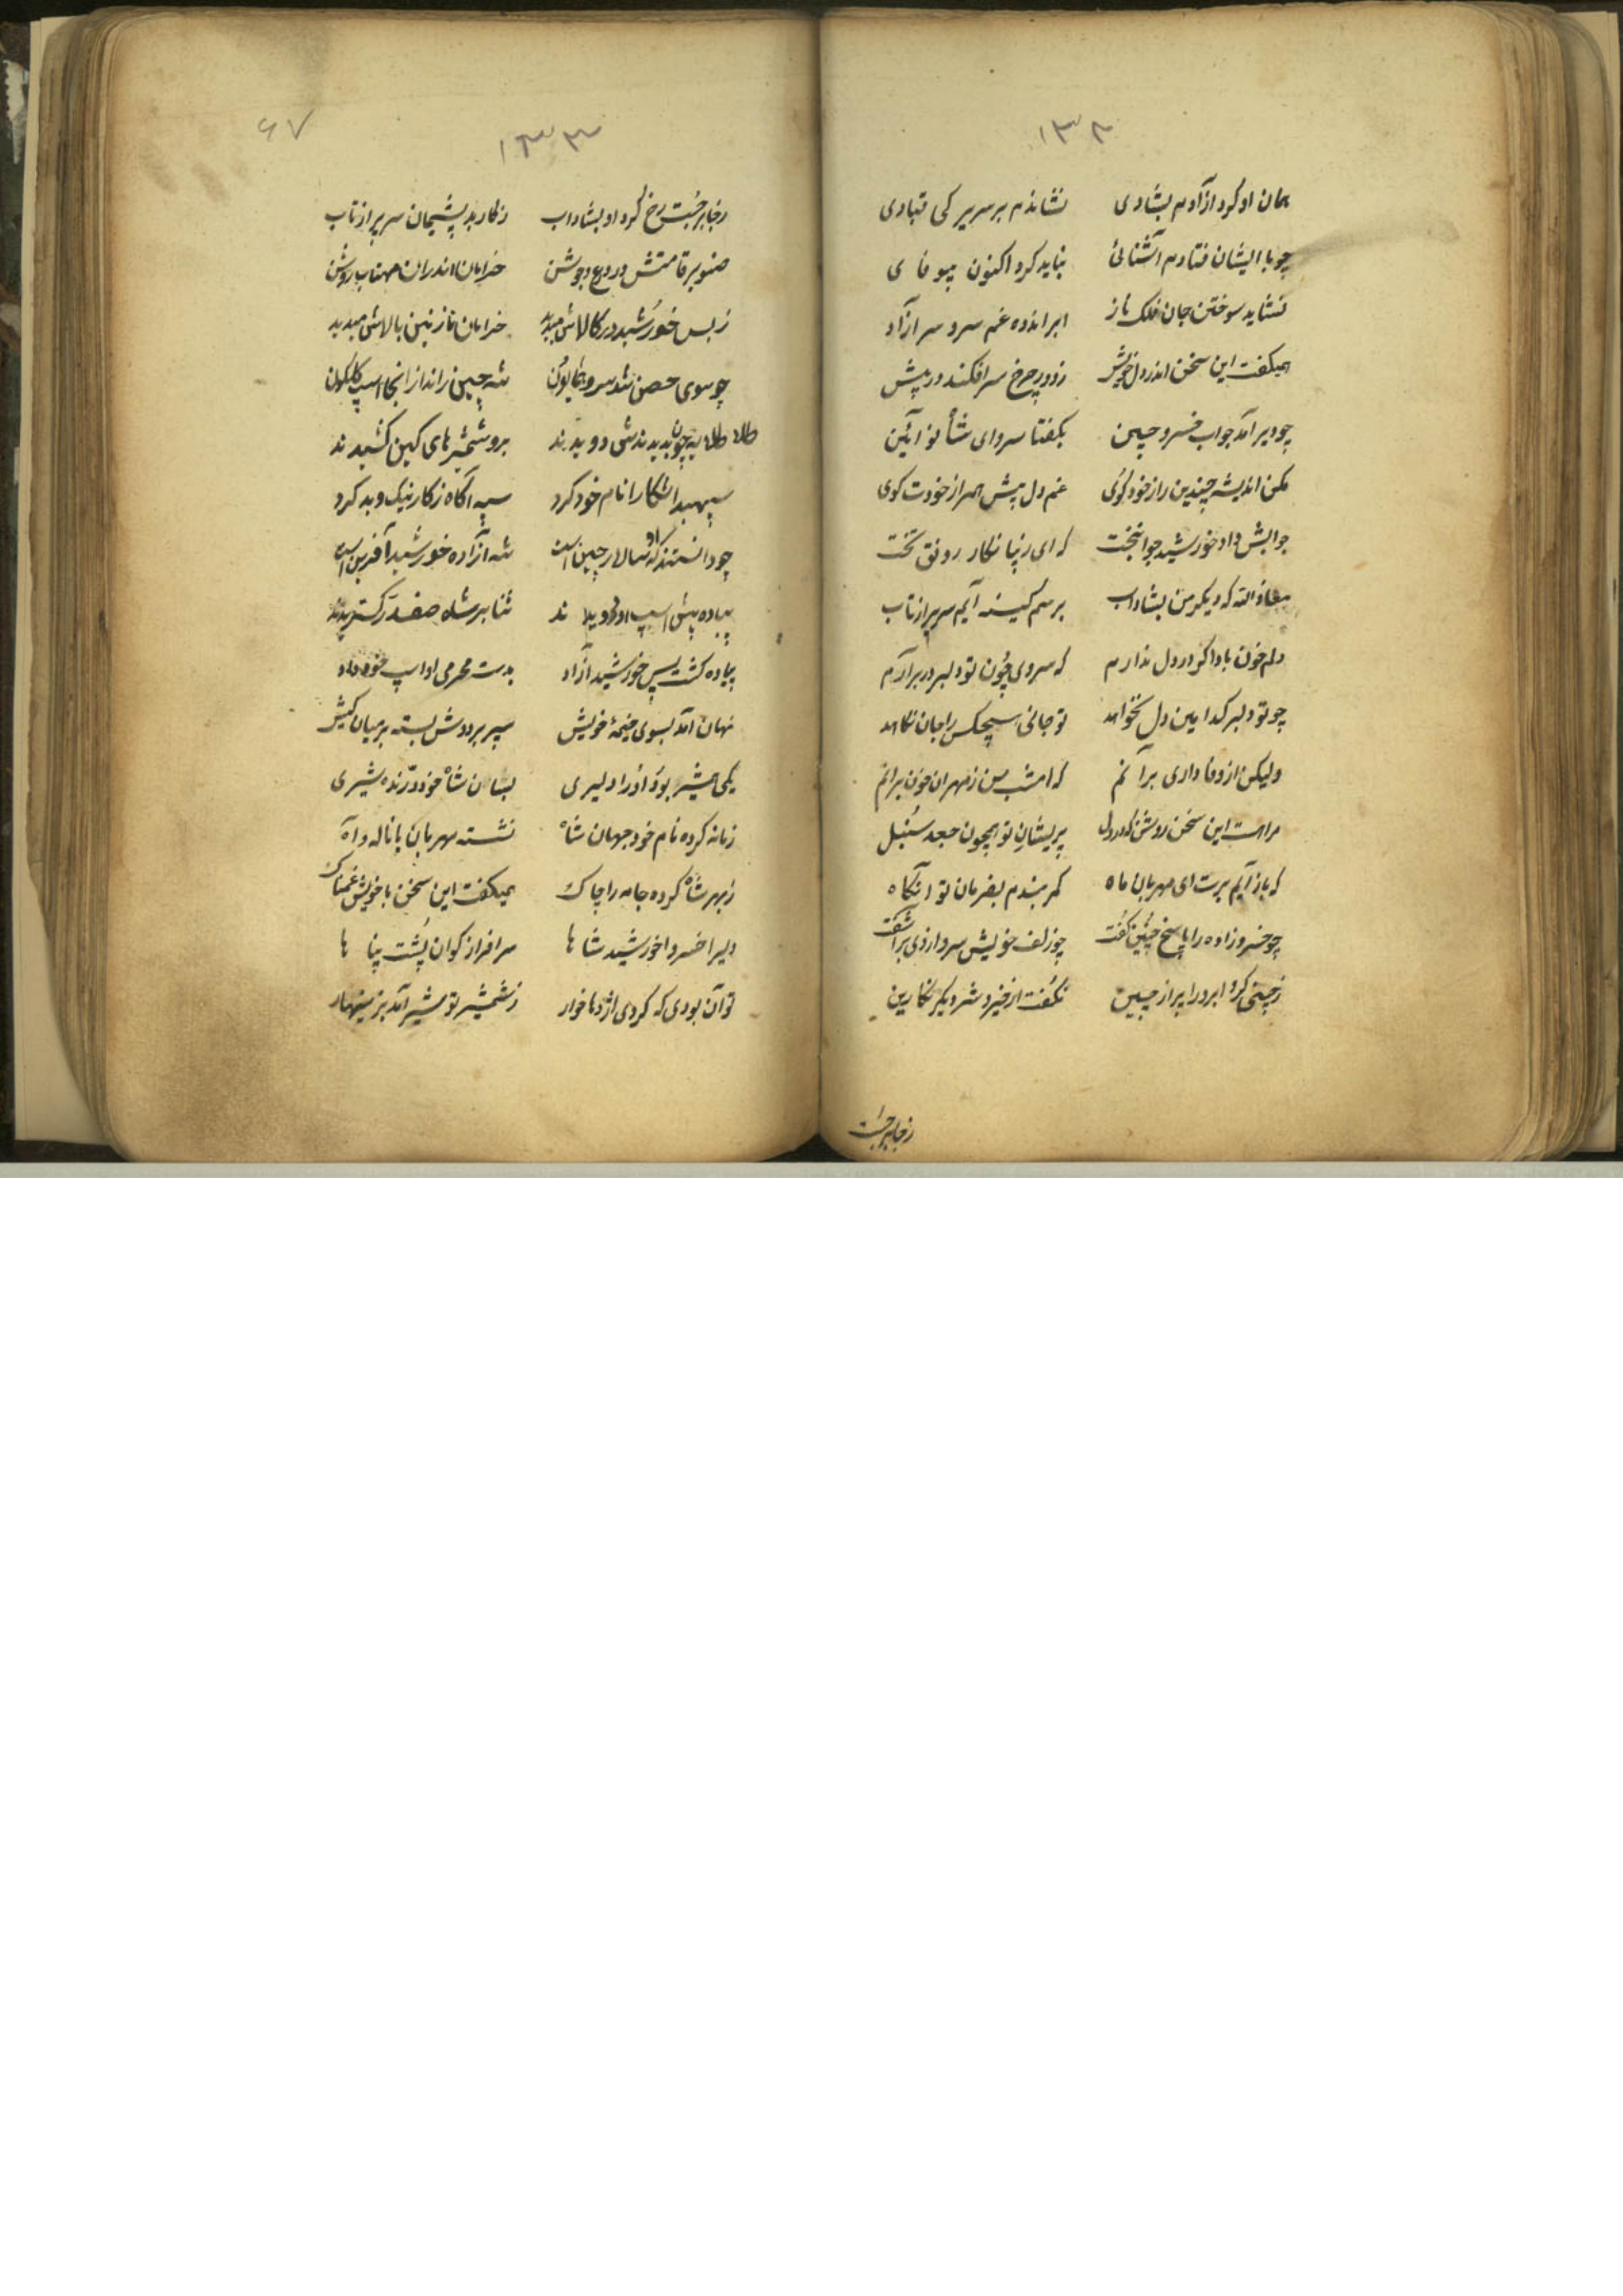 ۱۳۲
همان او کرد از آدم بشادی نشاندم بر سریر کی قبادی
چو با ایشان فتادم آشنائی نباید کرد اکنون بیوفای
نشاید سوختن جان فلک باز ابر اندوه غم سرو سر آزاد
همیگفت این سخن اندر دل خویش ز دور چرخ سر افکند در پیش
چو دیر آمد جواب خسرو چین بگفتا سرو ای شاه نو آئین
مکن اندیشه چندین راز خود گوی غم دل پیش همراز خودت گوی
جوابش داد خورشید جوانبخت که ای زیبا نگار رونق تخت
معاذ الله که دیگر من بشاداب برسم کینه آیم سر پر از تاب
دلم خون باد اگر در دل ندارم که سروی چون تو دلبر در بر آرم
چو تو دلبر کدامین دل نخواهد تو جانی هیچکس را جان نکاهد
ولیکن از وفاداری برآنم که امشب من ز مهران خون برانم
مراست این سخن روشن که در دل پریشان تو همچون جعد سنبل
که باز آیم برت ای مهربان ماه کمر بندم بفرمان تو آنگاه
چو خسرو زاده را پاسخ چنین گفت چو زلف خویش سرو از وی برآشفت
ز چینی کرد ابرو را پر از چین نگفت از خیر و شر دیگر نگارین
ز جا برجست
۶۷
۱۳۳
ز جا برجست رخ کرد او بشاداب ز کار بد پشیمان سر پر از تاب
صنوبر قامتش در درع و جوشن خرامان اندران مهتاب روشن
ز پس خورشید در کالاش میدید خرامان نازنین بالاش میدید
چو سوی حصن شد سرو همایون شه چین راند از آنجا اسپ گلگون
طلایه چون بدیدندش دویدند برو شمشیرهای کین کشیدند
سپهبد آشکارا نام خود کرد سپه آگاه ز کار نیک و بد کرد
چو دانستند کو سالار چین است شه آزاده خورشید آفرین است
پیاده پیش اسپ او دویدند ثنا بر شاه صفدر گستریدند
پیاده گشت پس خورشید آزاد بدست محرمی او اسپ خود داد
نهان آمد بسوی خیمهٔ خویش سپر بر دوش بسته بر میان کیش
یکی همشیر بود او را دلیری بسان شاه خود درنده شیری
زمانه کرده نام خود جهان شاه نشسته مهربان با ناله و آه
ز بهر شاه کرده جامه را چاک همیگفت این سخن با خویش غمناک
دلیرا خسروا خورشید شاها سرافراز گوان پشت پناها
تو آن بودی که کردی اژدها خوار ز شمشیر تو شیر آمد بزینهار